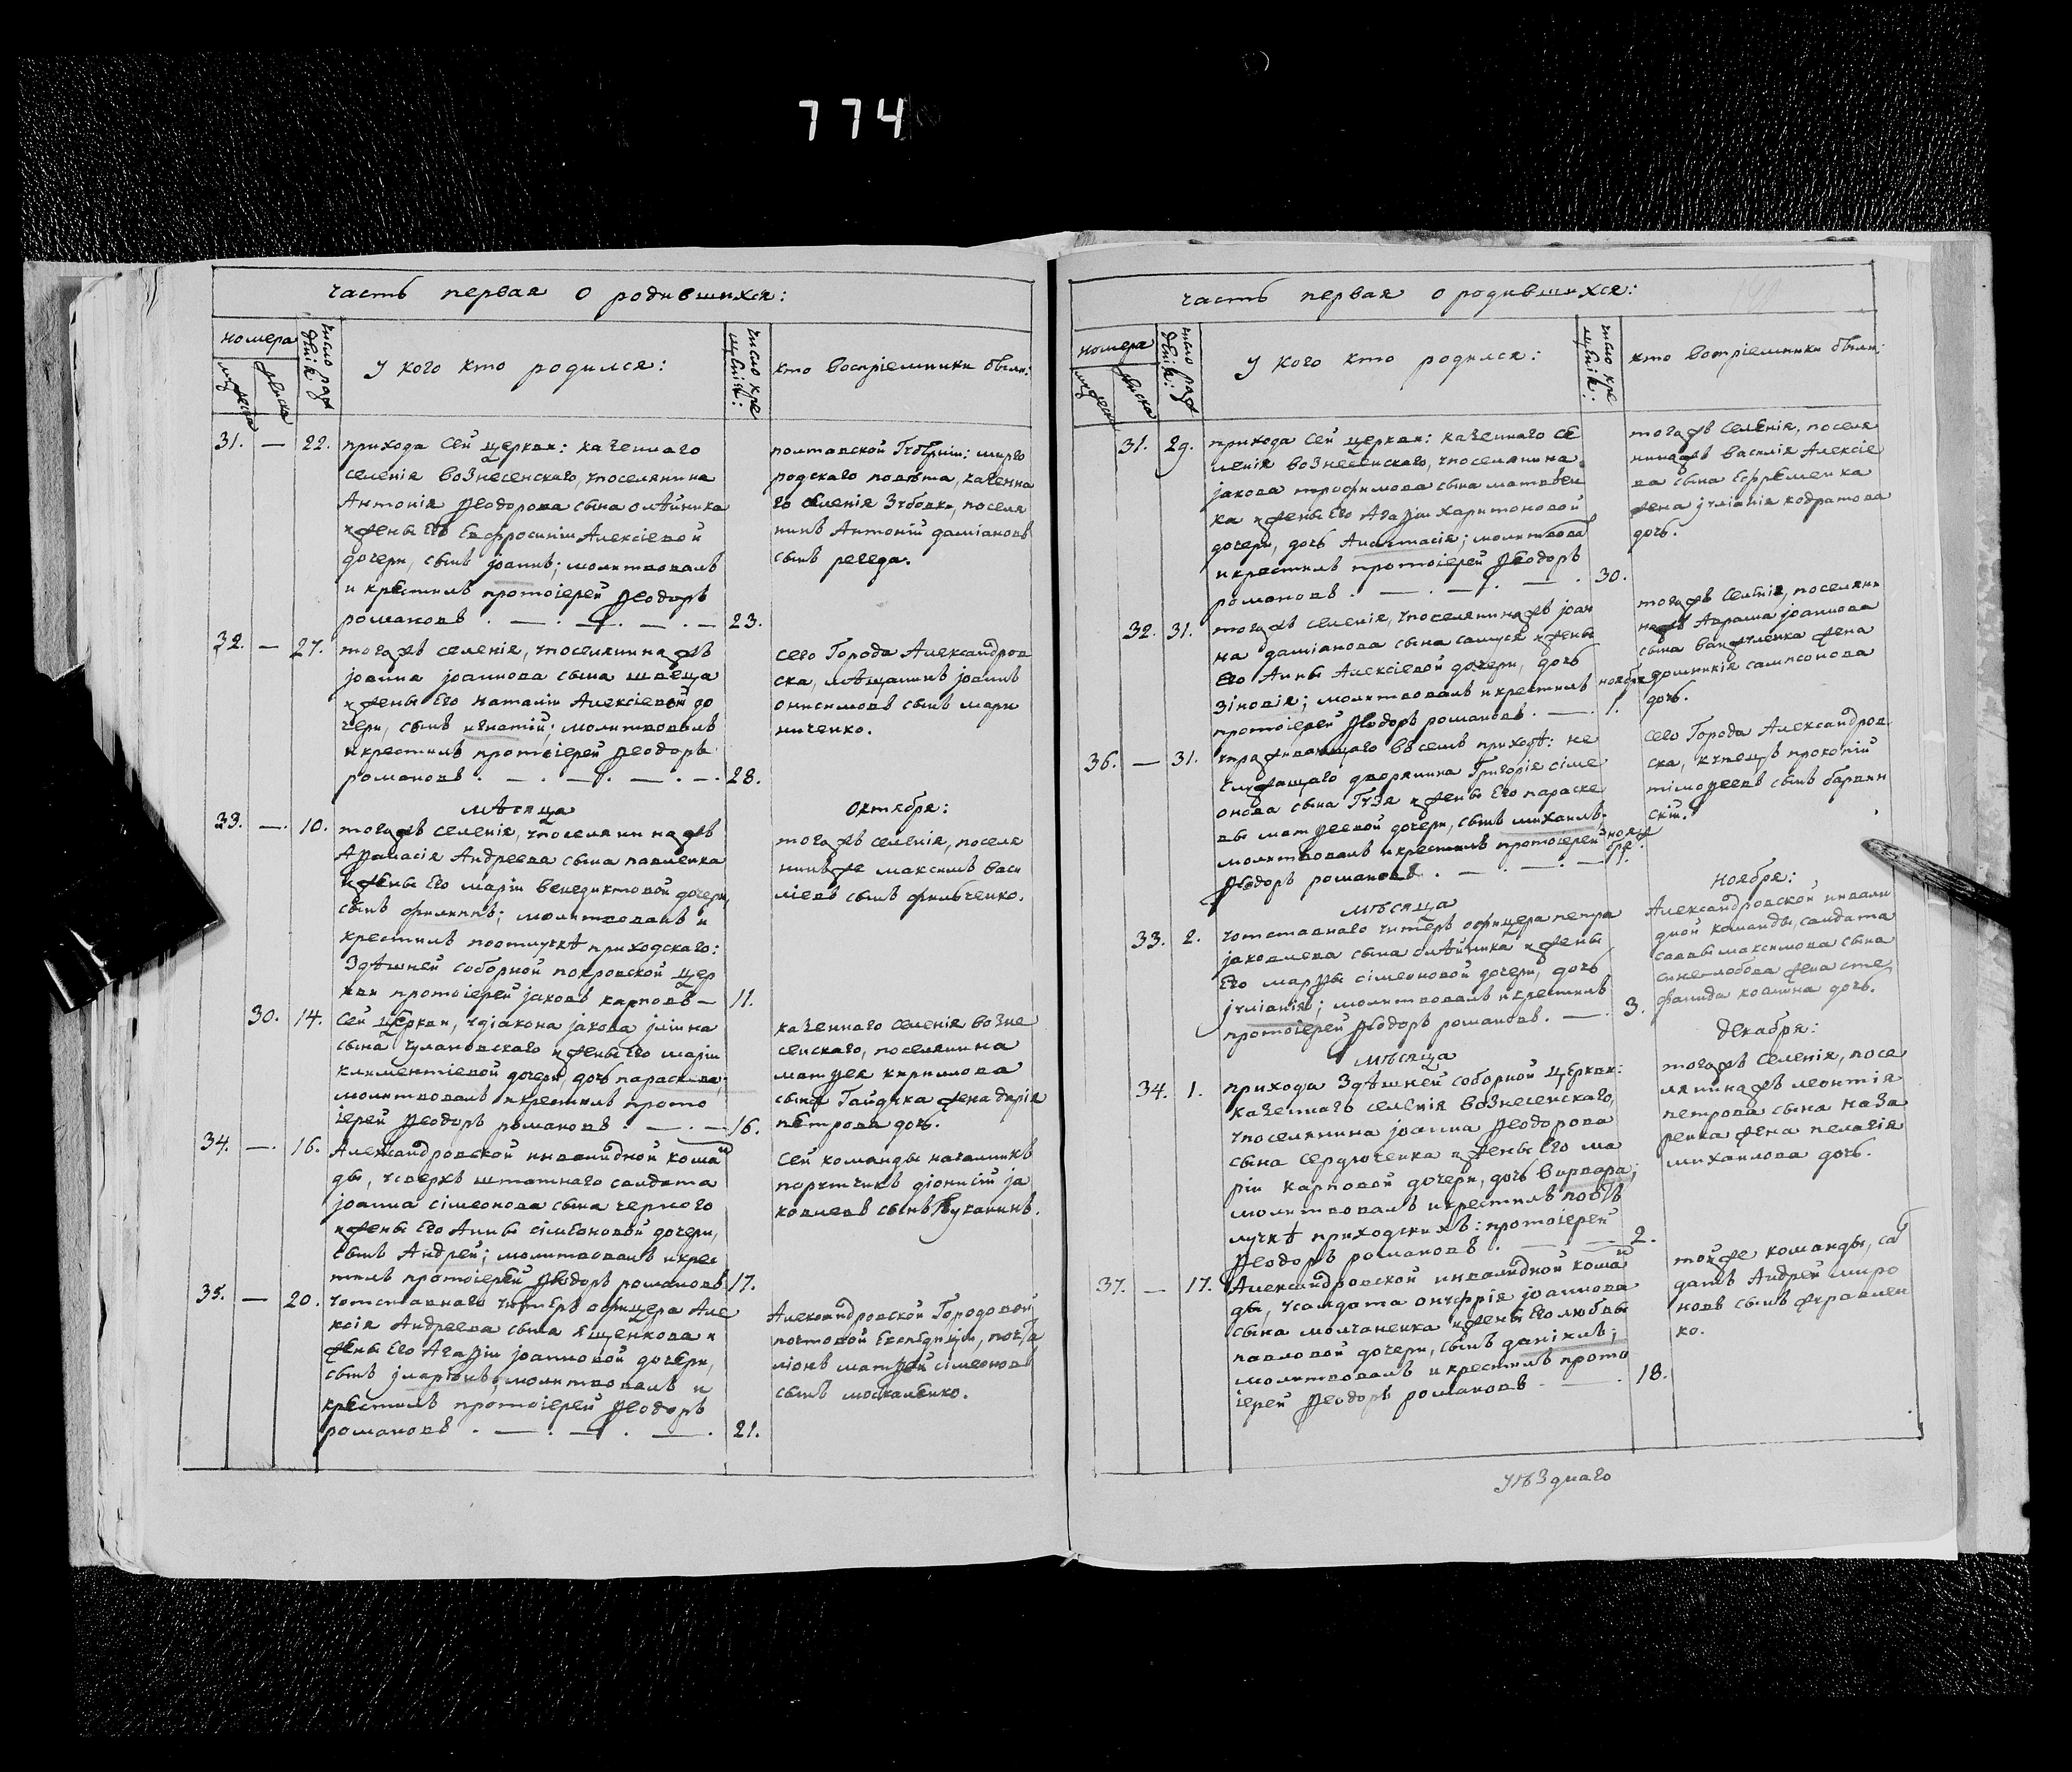 774
часть первая о родившихся:
номера
мужеска
женска
число рождѣнiя:
у кого кто родился:
число крещѣнiя:
кто воспрiемники были:
31. — 22.
прихода сей церкви: казеннаго
селенiя вознесенскаго, у поселянина
Антонiя Ѳеодорова сына олѣйника
и жены его Евфросинiи Алексiевой
дочери, сынъ jоаннъ; молитвовалъ
и крестилъ протоiерей Ѳеодоръ
романовъ . — . — . — . — 23.
полтавской Губернiи: мирго
родскаго повѣта, казенна
го селенiя Зубовки, поселя
нинъ Антонiй дамiановъ
сынъ регеда.
32. — 27.
тогожъ селенiя, у поселянинажъ
jоанна jоаннова сына швеца
и жены его наталiи Алексiевой до
чери, сынъ игнатiй; молитвовалъ
и крестилъ протоiерей Ѳеодоръ
романовъ . — . — . — . — . 28.
сего Города Александров
ска, мѣщанинъ jоаннъ
онисимовъ сынъ мари
ниченко.
мѣсяца
октября:
33. — . 10.
тогожъ селенiя, у поселянинажъ
Аѳанасiя Андреева сына павленка
и жены его марiи венедиктовой дочери,
сынъ филиппъ; молитвовалъ и
крестилъ поотлучкѣ приходскаго:
Здѣшней соборной покровской цер
кви протоiерей jаковъ карповъ — 11.
тогожъ селенiя, поселя
нинъже максимъ васи
лiевъ сынъ фильченко.
30. 14.
сей церкви, у дiакона jакова jлiина
сына чулановскаго и жены его марiи
климентiевой дочери, дочь параскева;
молитвовалъ и крестилъ прото
iерей Ѳеодоръ романовъ . — . — 16.
казеннаго селенiя возне
сенскаго, поселянина
матѳея кириллова
сына Гайдука жена дарiя
петрова дочь.
34. — . 16.
Александровской инвалидной коман
ды, у сверхъ штатнаго солдата
jоанна сiмеонова сына чернаго
и жены его Анны сiмеоновой дочери,
сынъ Андрей; молитвовалъ и крес
тилъ протоiерей Ѳеодоръ романовъ 17.
сей команды начальникъ
поручикъ дiонисiй jа
ковлевъ сынъ Луканинъ.
35. — 20.
у отставнаго унтеръ офицера Але
ксiя Андреева сына ященкова и
жены его Агаѳiи jоанновой дочери,
сынъ jларiонъ; молитвовалъ и
крестилъ протоiерей Ѳеодоръ
романовъ . — . — . — . 21.
Александровской Городовой
почтовой Експедицiи, почта
лiонъ матѳей сiмеоновъ
сынъ москаленко.
часть первая о родившихся:
номера
мужеска
женска
число рождѣнiя:
у кого кто родился:
число крещѣнiя:
кто воспрiемники были:
31. 29.
прихода сей церкви: казеннаго се
ленiя вознесенскаго, у поселянина
jакова трофимова сына матвѣен
ка и жены его Агаѳiи харитоновой
дочери, дочь Анастасiя; молитвовалъ
и крестилъ протоiерей Ѳеодоръ
романовъ . — . — . — . 30.
тогожъ селенiя, поселя
нинажъ василiя Алексiе
ва сына Ефременка
жена jулiанiя кодратова
дочь.
32. 31.
тогожъ селенiя, у поселянинажъ jоан
на дамiанова сына самуся и жены
его Анны Алексiевой дочери, дочь
Зiновiя; молитвовалъ и крестилъ ноября
протоiерей Ѳеодоръ романовъ . — . 1.
тогожъ селенiя, поселяни
нажъ Авраама jоаннова
сына бандуленка жена
домникiя сампсонова
дочь.
36. — 31.
у проживающаго въ семъ приходѣ: не
служащаго дворянина Григорiя сiме
онова сына Гузя и жены его параске
вы матѳеевой дочери, сынъ михаилъ.
молитвовалъ и крестилъ протоiерей нояб
Ѳеодоръ романовъ . — . — . — бря. 1.
сего Города Александров
ска, купецъ прокопiй
тiмоѳеевъ сынъ барвин
скiй.
мѣсяца
ноября:
33. 2.
у отставнаго унтеръ офицера петра
jаковлева сына олѣйника и жены
его марѳы сiмеоновой дочери, дочь
jулiанiя; молитвовалъ и крестилъ
протоiерей Ѳеодоръ романовъ. — . 3.
Александровской инвали
дной команды, солдата
саввы максимова сына
синелобова жена сте
фанида козмина дочь.
мѣсяца
декабря:
34. 1.
прихода Здѣшней соборной церкви:
казеннаго селенiя вознесенскаго,
у поселянина jоанна Ѳеодорова
сына сердюченка и жены его ма
рiи карповой дочери, дочь варвара;
молитвовалъ и крестилъ поот
лучкѣ приходскихъ: протоiерей
Ѳеодоръ романовъ . — . — 2.
тогожъ селенiя, посе
лянинажъ леонтiя
петрова сына наза
ренка жена пелагiя
михаилова дочь.
37. — 17.
Александровской инвалидной коман
ды, у солдата онуфрiя jоаннова
сына молчаненка и жены его любвы
павловой дочери, сынъ данiилъ;
молитвовалъ и крестилъ прото
iерей Ѳеодоръ романовъ . — . 18.
тойже команды, сол
датъ Андрей миро
новъ сынъ журавлен
ко.
уѣзднаго